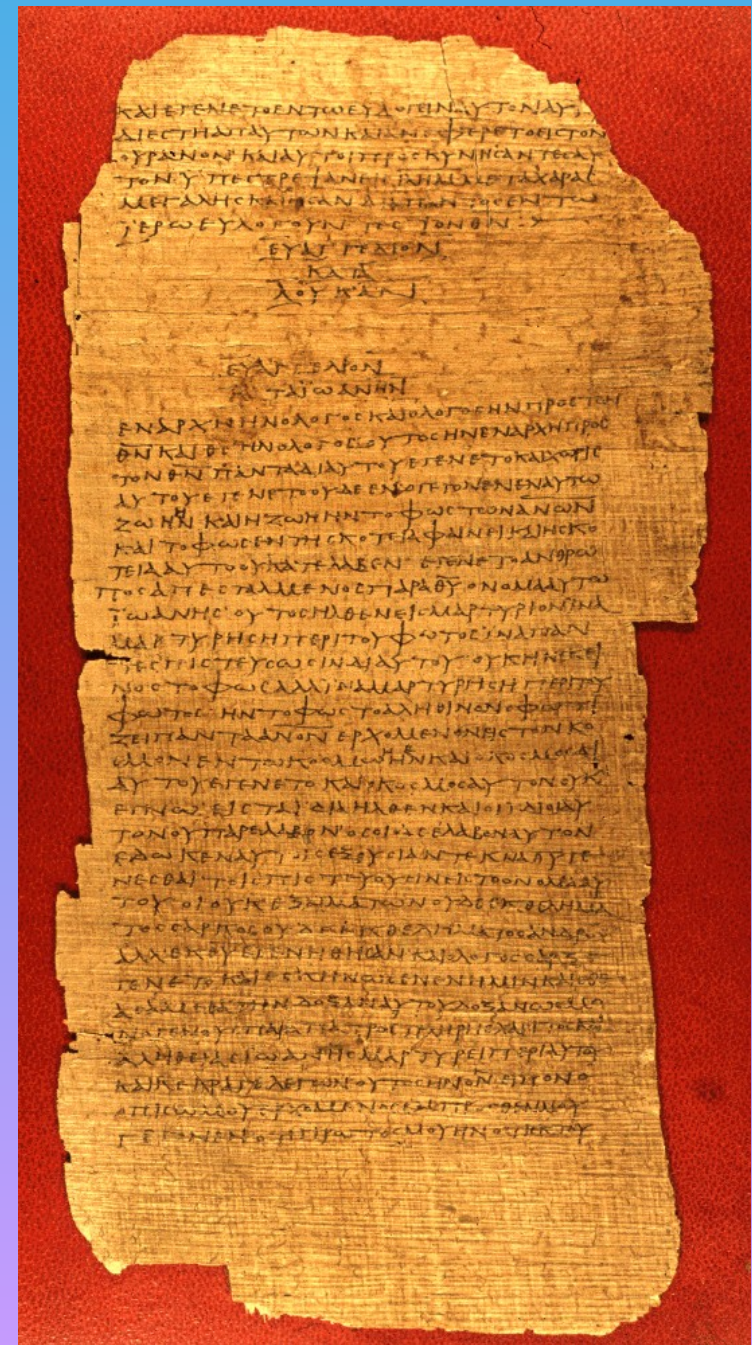 ΚΑΙ ΕΓΕΝΕΤΟ ΕΝ ΤΩ ΕΥΛΟΓΕΙΝ ΑΥΤΟΝ ΑΥ
ΔΙΕΣΤΗ ΑΠ ΑΥΤΩΝ ΚΑΙ ΑΝΕΦΕΡΕΤΟ ΕΙΣ ΤΟΝ
ΟΥΡΑΝΟΝ ΚΑΙ ΑΥΤΟΙ ΠΡΟΣΚΥΝΗΣΑΝΤΕΣ ΑΥ
ΤΟΝ ΥΠΕΣΤΡΕΨΑΝ ΜΕΤΑ ΧΑΡΑΣ
ΜΕΓΑΛΗΣ ΚΑΙ ΗΣΑΝ ΕΝ ΤΩ
ΪΕΡΩ ΕΥΛΟΓΟΥΝΤΕΣ ΤΟΝ Θ̅Ν̅
ΕΥΑΓΓΕΛΙΟΝ
ΚΑΤΑ
ΛΟΥΚΑΝ
ΕΥΑΓΓΕΛΙΟΝ
ΚΑΤΑ ΪΩΑΝΗΝ
ΕΝ ΑΡΧΗ ΗΝ Ο ΛΟΓΟΣ ΚΑΙ Ο ΛΟΓΟΣ ΗΝ ΠΡΟΣ ΤΟΝ
Θ̅Ν̅ ΚΑΙ Θ̅Σ̅ ΗΝ Ο ΛΟΓΟΣ ΟΥΤΟΣ ΗΝ ΕΝ ΑΡΧΗ ΠΡΟΣ
ΤΟΝ Θ̅Ν̅ ΠΑΝΤΑ ΔΙ ΑΥΤΟΥ ΕΓΕΝΕΤΟ ΚΑΙ ΧΩΡΙΣ
ΑΥΤΟΥ ΕΓΕΝΕΤΟ ΟΥΔΕ ΕΝ Ο ΓΕΓΟΝΕΝ ΕΝ ΑΥΤΩ
ΖΩΗ ΗΝ ΚΑΙ Η ΖΩΗ ΗΝ ΤΟ ΦΩΣ ΤΩΝ Α̅Ν̅Ω̅Ν̅
ΚΑΙ ΤΟ ΦΩΣ ΕΝ ΤΗ ΣΚΟΤΕΙΑ ΦΑΙΝΕΙ ΚΑΙ Η ΣΚΟ
ΤΕΙΑ ΑΥΤΟ ΟΥ ΚΑΤΕΛΑΒΕΝ ΕΓΕΝΕΤΟ ΑΝΘΡΩ
ΠΟΣ ΑΠΕΣΤΑΛΜΕΝΟΣ ΠΑΡΑ Θ̅Υ̅ ΟΝΟΜΑ ΑΥΤΩ
ΪΩΑΝΗΣ ΟΥΤΟΣ ΗΛΘΕΝ ΕΙΣ ΜΑΡΤΥΡΙΟΝ ΪΝΑ
ΜΑΡΤΥΡΗΣΗ ΠΕΡΙ ΤΟΥ ΦΩΤΟΣ ΪΝΑ ΠΑΝ
ΤΕΣ ΠΙΣΤΕΥΣΩΣΙΝ ΔΙ ΑΥΤΟΥ ΟΥΚ ΗΝ ΕΚΕΙ
ΝΟΣ ΤΟ ΦΩΣ ΑΛΛ ΪΝΑ ΜΑΡΤΥΡΗΣΗ ΠΕΡΙ ΤΟΥ
ΦΩΤΟΣ ΗΝ ΤΟ ΦΩΣ ΤΟ ΑΛΗΘΙΝΟΝ Ο ΦΩΤΙ
ΖΕΙ ΠΑΝΤΑ Α̅Ν̅Ο̅Ν̅ ΕΡΧΟΜΕΝΟΝ ΗΣ ΤΟΝ ΚΟ
ΣΜΟΝ ΕΝ ΤΩ ΚΟΣΜΩ ΗΝ ΚΑΙ Ο ΚΟΣΜΟΣ ΔΙ
ΑΥΤΟΥ ΕΓΕΝΕΤΟ ΚΑΙ Ο ΚΟΣΜΟΣ ΑΥΤΟΝ ΟΥΚ
ΕΓΝΩ ΕΙΣ ΤΑ ΪΔΙΑ ΗΛΘΕΝ ΚΑΙ ΟΙ ΪΔΙΟΙ ΑΥ
ΤΟΝ ΟΥ ΠΑΡΕΛΑΒΟΝ ΟΣΟΙ ΔΕ ΕΛΑΒΟΝ ΑΥΤΟΝ
ΕΔΩΚΕΝ ΑΥΤΟΙΣ ΕΞΟΥΣΙΑΝ ΤΕΚΝΑ Θ̅Υ̅ ΓΕ
ΝΕΣΘΑΙ ΤΟΙΣ ΠΙΣΤΕΥΟΥΣΙΝ ΕΙΣ ΤΟ ΟΝΟΜΑ ΑΥ
ΤΟΥ ΟΙ ΟΥΚ ΕΞ ΑΙΜΑΤΩΝ ΟΥΔΕ ΕΚ ΘΕΛΗΜΑ
ΤΟΣ ΣΑΡΚΟΣ ΟΥΔΕ ΕΚ ΘΕΛΗΜΑΤΟΣ ΑΝΔΡΟΣ
ΑΛΛΑ ΕΚ Θ̅Υ̅ ΕΓΕΝΗΘΗΣΑΝ ΚΑΙ Ο ΛΟΓΟΣ ΣΑΡΞ Ε
ΓΕΝΕΤΟ ΚΑΙ ΕΣΚΗΝΩΣΕΝ ΕΝ ΗΜΙΝ ΚΑΙ ΕΘΕ
ΑΣΑΜΕΘΑ ΤΗΝ ΔΟΞΑΝ ΑΥΤΟΥ ΔΟΞΑΝ ΩΣ ΜΟ
ΝΟΓΕΝΟΥΣ ΠΑΡΑ ΠΑΤΡΟΣ ΠΛΗΡΗΣ ΧΑΡΙΤΟΣ ΚΑΙ
ΑΛΗΘΕΙΑΣ ΪΩΑΝΗΣ ΜΑΡΤΥΡΕΙ ΠΕΡΙ ΑΥΤΟΥ
ΚΑΙ ΚΕΚΡΑΓΕ ΛΕΓΩΝ ΟΥΤΟΣ ΗΝ ΟΝ ΕΙΠΟΝ Ο
ΟΠΙΣΩ ΜΟΥ ΕΡΧΟΜΕΝΟΣ ΕΜΠΡΟΣΘΕΝ ΜΟΥ
ΓΕΓΟΝΕΝ ΟΤΙ ΠΡΩΤΟΣ ΜΟΥ ΗΝ ΟΤΙ ΕΚ ΤΟΥ